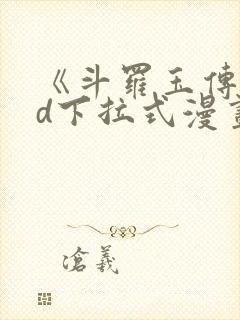 《斗羅玉傳
d下拉式漫畫
滄義